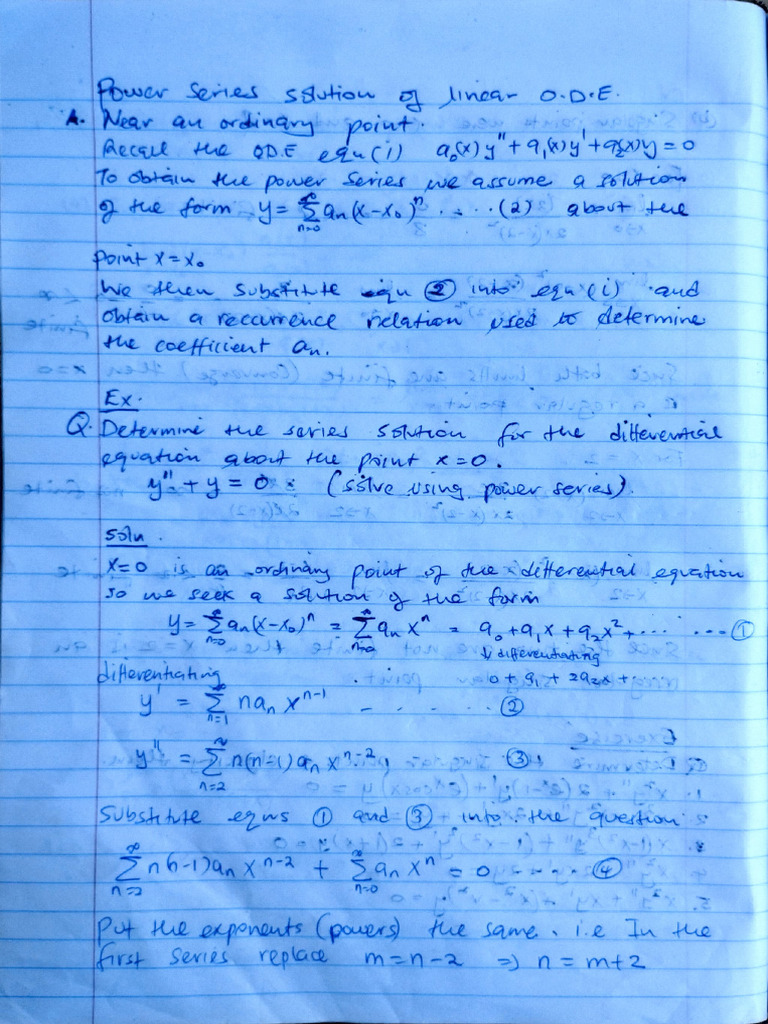 Power series solution of linear O.D.E.
A. Near an ordinary point.
Recall the O.D.E equ (i) a₀(x)y'' + a₁(x)y' + a₂(x)y = 0
To obtain the power series we assume a solution
of the form y = ∑_{n=0}^{∞} aₙ(x-x₀)ⁿ .....(2) about the
point x = x₀
We then substitute equ ② into equ (i) and
obtain a reccurrence relation used to determine
the coefficient aₙ.
Ex.
Q. Determine the series solution for the differential
equation about the point x = 0.
y'' + y = 0 : (solve using power series).
Soln.
x=0 is an ordinary point of the differential equation
so we seek a solution of the form
y = ∑_{n=0}^{∞} aₙ(x-x₀)ⁿ = ∑_{n=0}^{∞} aₙxⁿ = a₀ + a₁x + a₂x² + .... ... ①
↓ differentiating
differentiating 0 + a₁ + 2a₂x +
y' = ∑_{n=1}^{∞} naₙxⁿ⁻¹ - . . . . . ②
y'' = ∑_{n=2}^{∞} n(n-1)aₙxⁿ⁻² ③
Substitute equns ① and ③ into the question
∑_{n=2}^{∞} n(n-1)aₙxⁿ⁻² + ∑_{n=0}^{∞} aₙxⁿ = 0 - - ④
Put the exponents (powers) the same. i.e In the
first series replace m = n-2 ⇒ n = m+2